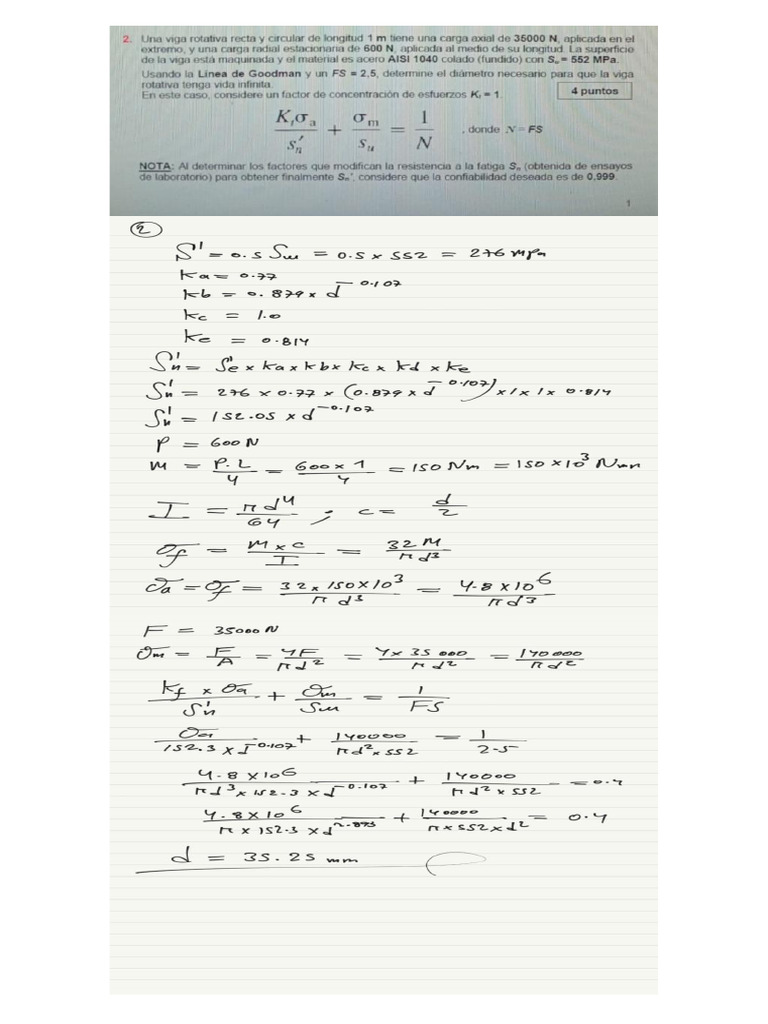 2. Una viga rotativa recta y circular de longitud 1 m tiene una carga axial de 35000 N, aplicada en el
extremo, y una carga radial estacionaria de 600 N, aplicada al medio de su longitud. La superficie
de la viga está maquinada y el material es acero AISI 1040 colado (fundido) con Su = 552 MPa.
Usando la Línea de Goodman y un FS = 2,5, determine el diámetro necesario para que la viga
rotativa tenga vida infinita.
En este caso, considere un factor de concentración de esfuerzos Kt = 1.
4 puntos
Ktσa/s'n + σm/su = 1/N , donde N = FS
NOTA: Al determinar los factores que modifican la resistencia a la fatiga Sn (obtenida de ensayos
de laboratorio) para obtener finalmente Sn', considere que la confiabilidad deseada es de 0,999.
1
2
S' = 0.5 Su = 0.5 x 552 = 276 mpa
ka = 0.77
kb = 0.879 x d^-0.107
kc = 1.0
ke = 0.814
Sn' = Se' x ka x kb x kc x kd x ke
Sn' = 276 x 0.77 x (0.879 x d^-0.107) x 1 x 1 x 0.814
Sn' = 152.05 x d^-0.107
P = 600 N
M = P.L/4 = 600 x 1/4 = 150 Nm = 150 x 10^3 Nmm
I = πd^4/64 ; c = d/2
σf = M x c/I = 32 M/πd^3
σa = σf = 32 x 150 x 10^3/πd^3 = 4.8 x 10^6/πd^3
F = 35000 N
σm = F/A = 4F/πd^2 = 4 x 35000/πd^2 = 140000/πd^2
kf x σa/Sn' + σm/Su = 1/FS
σa/152.3 x d^-0.107 + 140000/πd^2 x 552 = 1/2.5
4.8 x 10^6/πd^3 x 152.3 x d^-0.107 + 140000/πd^2 x 552 = 0.4
4.8 x 10^6/π x 152.3 x d^2.893 + 140000/π x 552 x d^2 = 0.4
d = 35.25 mm